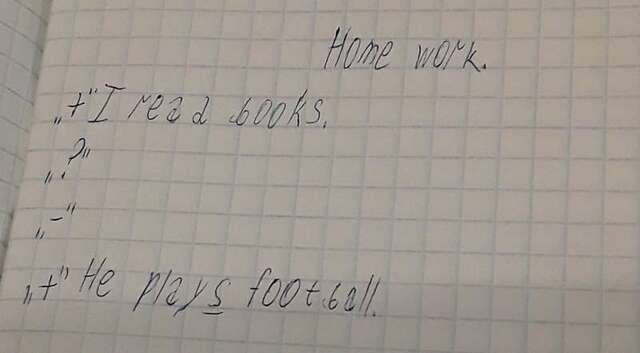 Home work.
„+“ I read books.
„?“
„-“
„+“ He plays football.